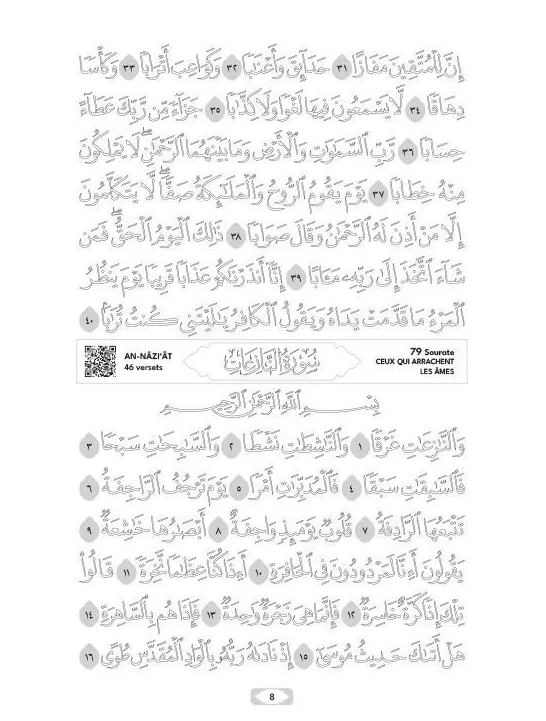 إِنَّ لِلْمُتَّقِينَ مَفَازًا ٣١ حَدَآئِقَ وَأَعْنَٰبًا ٣٢ وَكَوَاعِبَ أَتْرَابًا ٣٣ وَكَأْسًا
دِهَاقًا ٣٤ لَّا يَسْمَعُونَ فِيهَا لَغْوًا وَلَا كِذَّٰبًا ٣٥ جَزَآءً مِّن رَّبِّكَ عَطَآءً
حِسَابًا ٣٦ رَّبِّ ٱلسَّمَٰوَٰتِ وَٱلْأَرْضِ وَمَا بَيْنَهُمَا ٱلرَّحْمَٰنِ ۖ لَا يَمْلِكُونَ
مِنْهُ خِطَابًا ٣٧ يَوْمَ يَقُومُ ٱلرُّوحُ وَٱلْمَلَٰٓئِكَةُ صَفًّا ۖ لَّا يَتَكَلَّمُونَ
إِلَّا مَنْ أَذِنَ لَهُ ٱلرَّحْمَٰنُ وَقَالَ صَوَابًا ٣٨ ذَٰلِكَ ٱلْيَوْمُ ٱلْحَقُّ ۖ فَمَن
شَآءَ ٱتَّخَذَ إِلَىٰ رَبِّهِۦ مَـَٔابًا ٣٩ إِنَّآ أَنذَرْنَٰكُمْ عَذَابًا قَرِيبًا يَوْمَ يَنظُرُ
ٱلْمَرْءُ مَا قَدَّمَتْ يَدَاهُ وَيَقُولُ ٱلْكَافِرُ يَٰلَيْتَنِى كُنتُ تُرَٰبًۢا ٤٠
AN-NÂZI'ÂT
46 versets
سُورَةُ النَّازِعَاتِ
79 Sourate
CEUX QUI ARRACHENT
LES ÂMES
بِسْمِ ٱللَّهِ ٱلرَّحْمَٰنِ ٱلرَّحِيمِ
وَٱلنَّٰزِعَٰتِ غَرْقًا ١ وَٱلنَّٰشِطَٰتِ نَشْطًا ٢ وَٱلسَّٰبِحَٰتِ سَبْحًا ٣
فَٱلسَّٰبِقَٰتِ سَبْقًا ٤ فَٱلْمُدَبِّرَٰتِ أَمْرًا ٥ يَوْمَ تَرْجُفُ ٱلرَّاجِفَةُ ٦
تَتْبَعُهَا ٱلرَّادِفَةُ ٧ قُلُوبٌ يَوْمَئِذٍ وَاجِفَةٌ ٨ أَبْصَٰرُهَا خَٰشِعَةٌ ٩
يَقُولُونَ أَءِنَّا لَمَرْدُودُونَ فِى ٱلْحَافِرَةِ ١٠ أَءِذَا كُنَّا عِظَٰمًا نَّخِرَةً ١١ قَالُوا۟
تِلْكَ إِذًا كَرَّةٌ خَاسِرَةٌ ١٢ فَإِنَّمَا هِىَ زَجْرَةٌ وَٰحِدَةٌ ١٣ فَإِذَا هُم بِٱلسَّاهِرَةِ ١٤
هَلْ أَتَىٰكَ حَدِيثُ مُوسَىٰٓ ١٥ إِذْ نَادَىٰهُ رَبُّهُۥ بِٱلْوَادِ ٱلْمُقَدَّسِ طُوًى ١٦
8